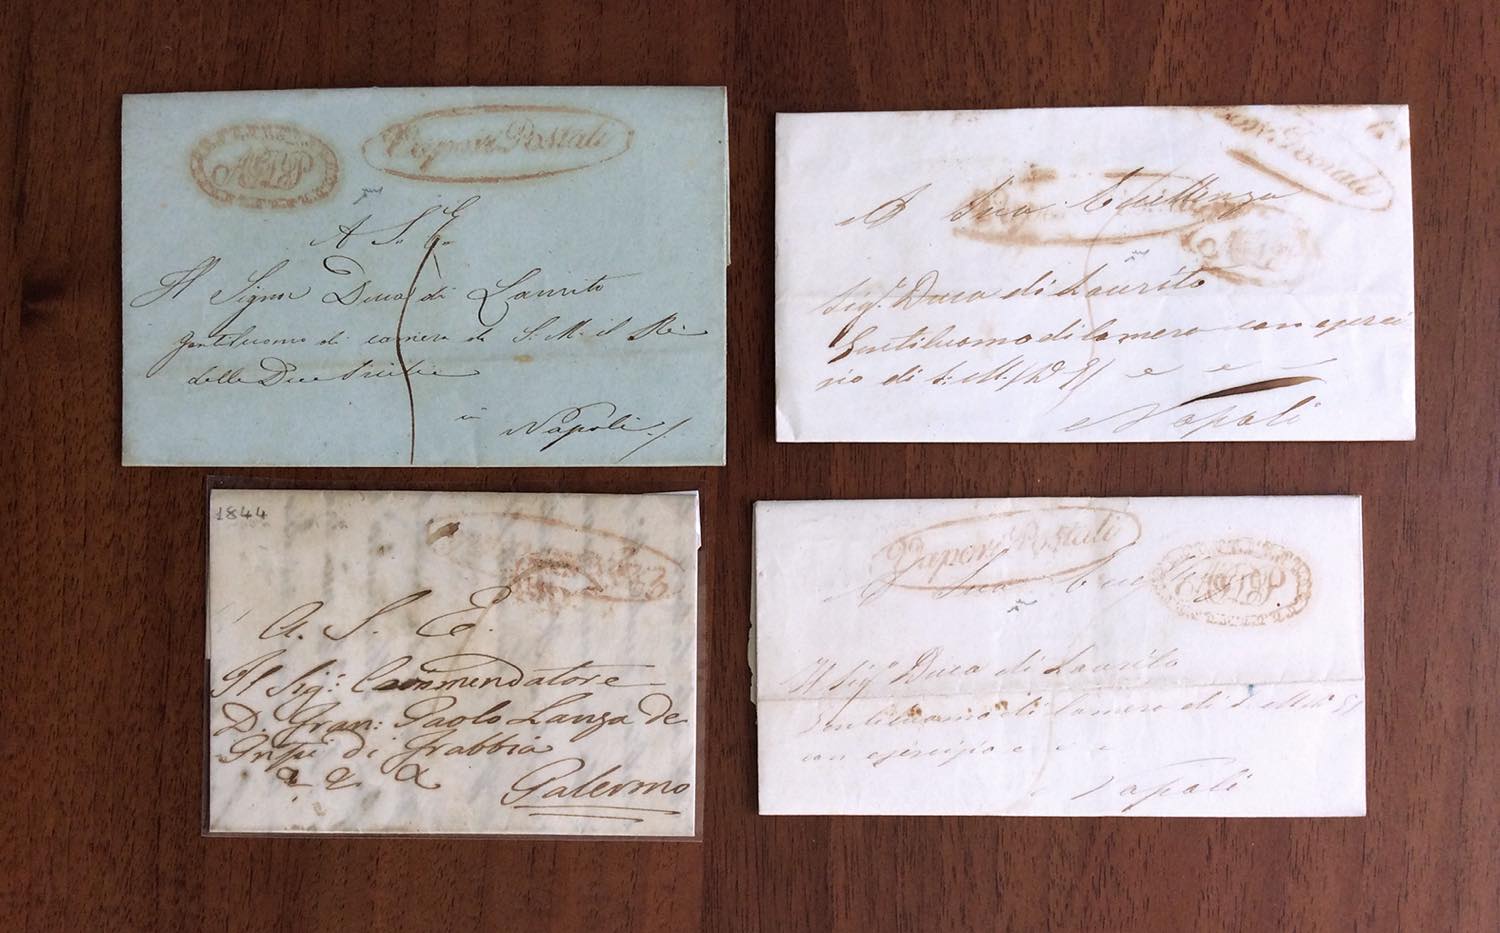 AGP
Vapori Postali
A S. E.
Il Signor Duca di Laurito
Gentiluomo di camera di S. M. il Re
delle Due Sicilie
in Napoli
Postali
A Sua Eccellenza
Sig.r Duca di Laurito
Gentiluomo di Camera con eserci
zio di S. M. (D. G.) e e
Napoli
1844
A. S. E.
Il Sig: Commendatore
D. Fran: Paolo Lanza de
di Trabbia
Palermo
Vapori Postali
AGP
A Sua
Il Sig.r Duca di Laurito
Gentiluomo di Camera di S. M.
con esercizio e e e
Napoli